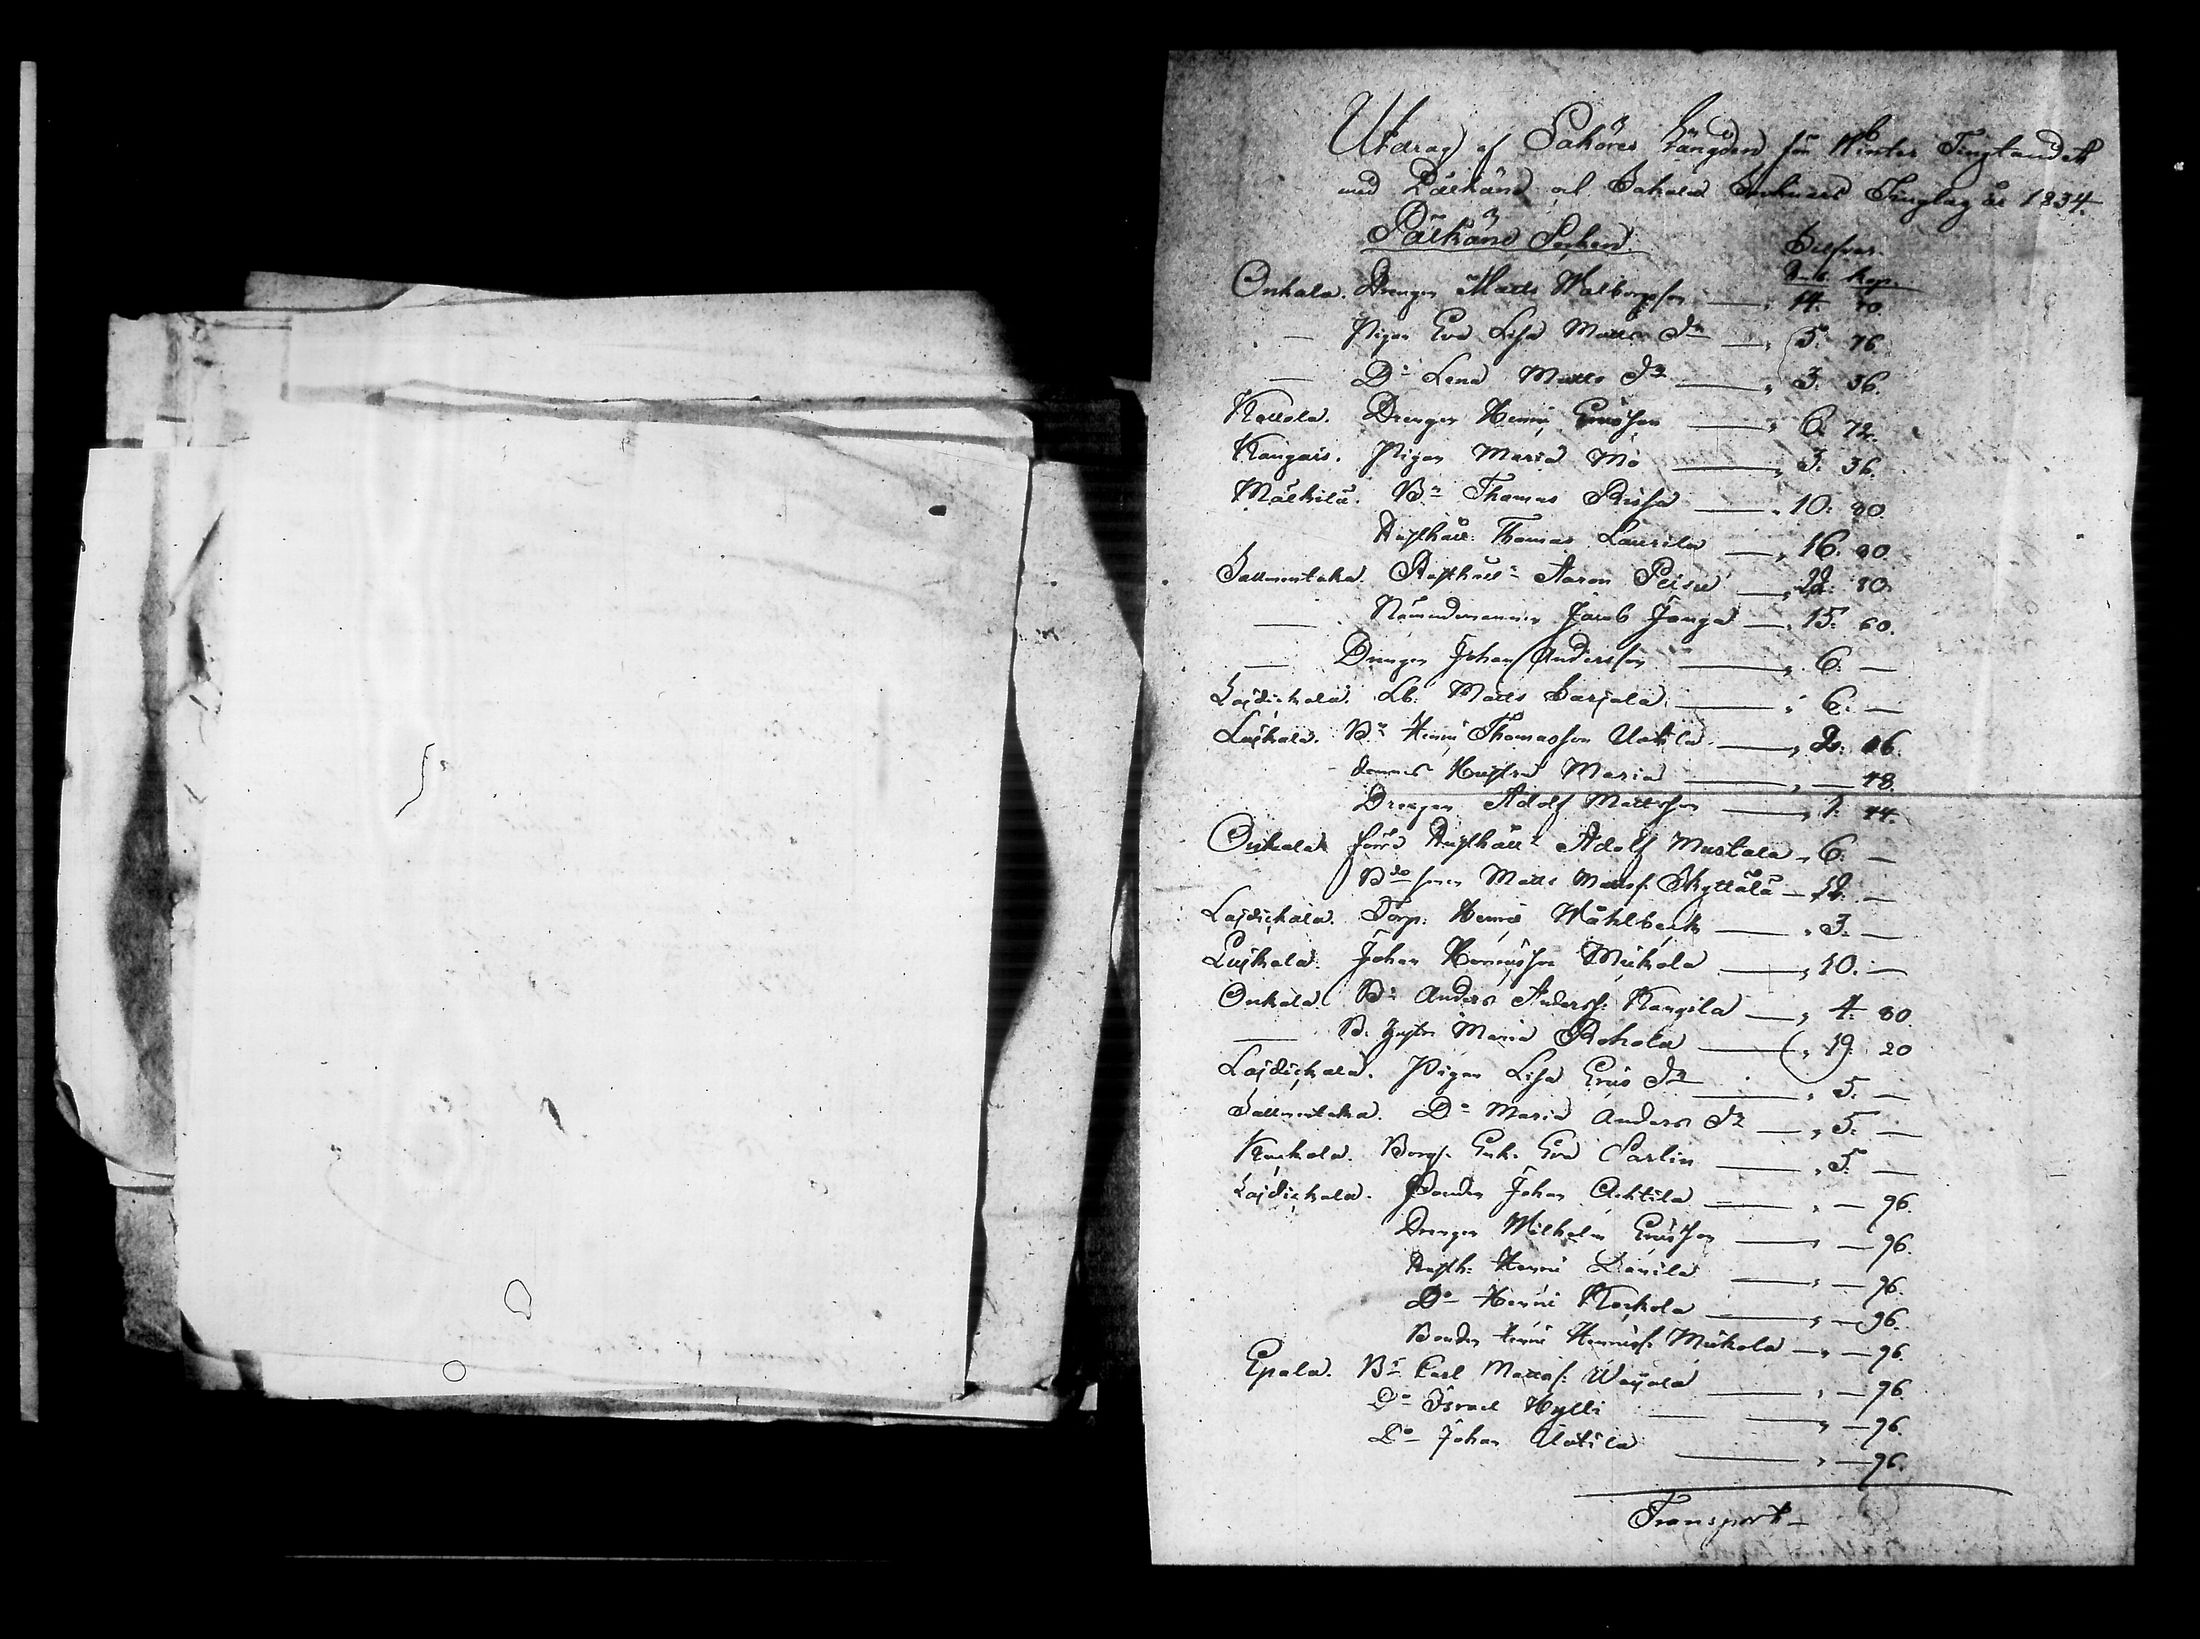 Utdrag af Saköres Längden för Winter Tingtandet
med Pälkäne och Sahala Sockners Tinglag år 1834.
Pälkäne Socken.
Silfver.
Rub. Kop.
Onkala. Drengen Matts Walborgsson — „ 14. 40.
— Pigan Eva Lisa Matts Dr — „ 5. 76.
— Do Lena Matts Dr — „ 3. 36.
Kollola. Drengen Henric Ericsson — „ 6. 72.
Kangais. Pigan Maria Mö — „ 3. 36.
Mälkilä. Bn Thomas Rissa — „ 10. 80.
Rusthåll: Thomas Laurila — „ 16. 80.
Sallmentaka. Rusthålln Aaron Peisu — „ 22. 80.
— Nämndemannen Jacob Jonga — „ 15. 60.
— Drengen Johan Andersson — „ 6. —
Lajdickala. Lb. Matts Sarjala — „ 6. —
Lujkala. Bn Henric Thomasson Uotila — „ 2. 16.
dennes Hustru Maria — „ — 48.
Drengen Adolf Mattsson — „ 1. 44.
Onkala förra Rusthålln Adolf Mustala „ 6. —
Bdesonen Matts Mattsf. Skyttälä — 12. —
Lajdickala. Torp. Henric Wåhlbeck — „ 3. —
Lujkala. Johan Henricsson Mickola — „ 10. —
Onkala. Bn Anders Andersf: Kangila — „ 4. 80.
— B. hustr. Maria Rohola — „ 19. 20
Lajdickala. Pigan Lisa Erics Dr — „ 5. —
Sallmentaka. Do Maria Anders Dr — „ 5. —
Kuckola. Borgs. Enk. Eva Carlin — „ 5. —
Lajdickala. Bonden Johan Achtila — „ — 96.
Drengen Wilhelm Ericsson — „ — 96.
Rusth: Henric Danila — „ — 96.
Do Henric Kockola — „ — 96.
Bonden Henric Henricsf. Mickola — „ — 96.
Epala. Bn Carl Mattsf. Woijola — „ — 96.
Do Israel Hylli — „ — 96.
Do Johan Uotila — „ — 96.
Transport —